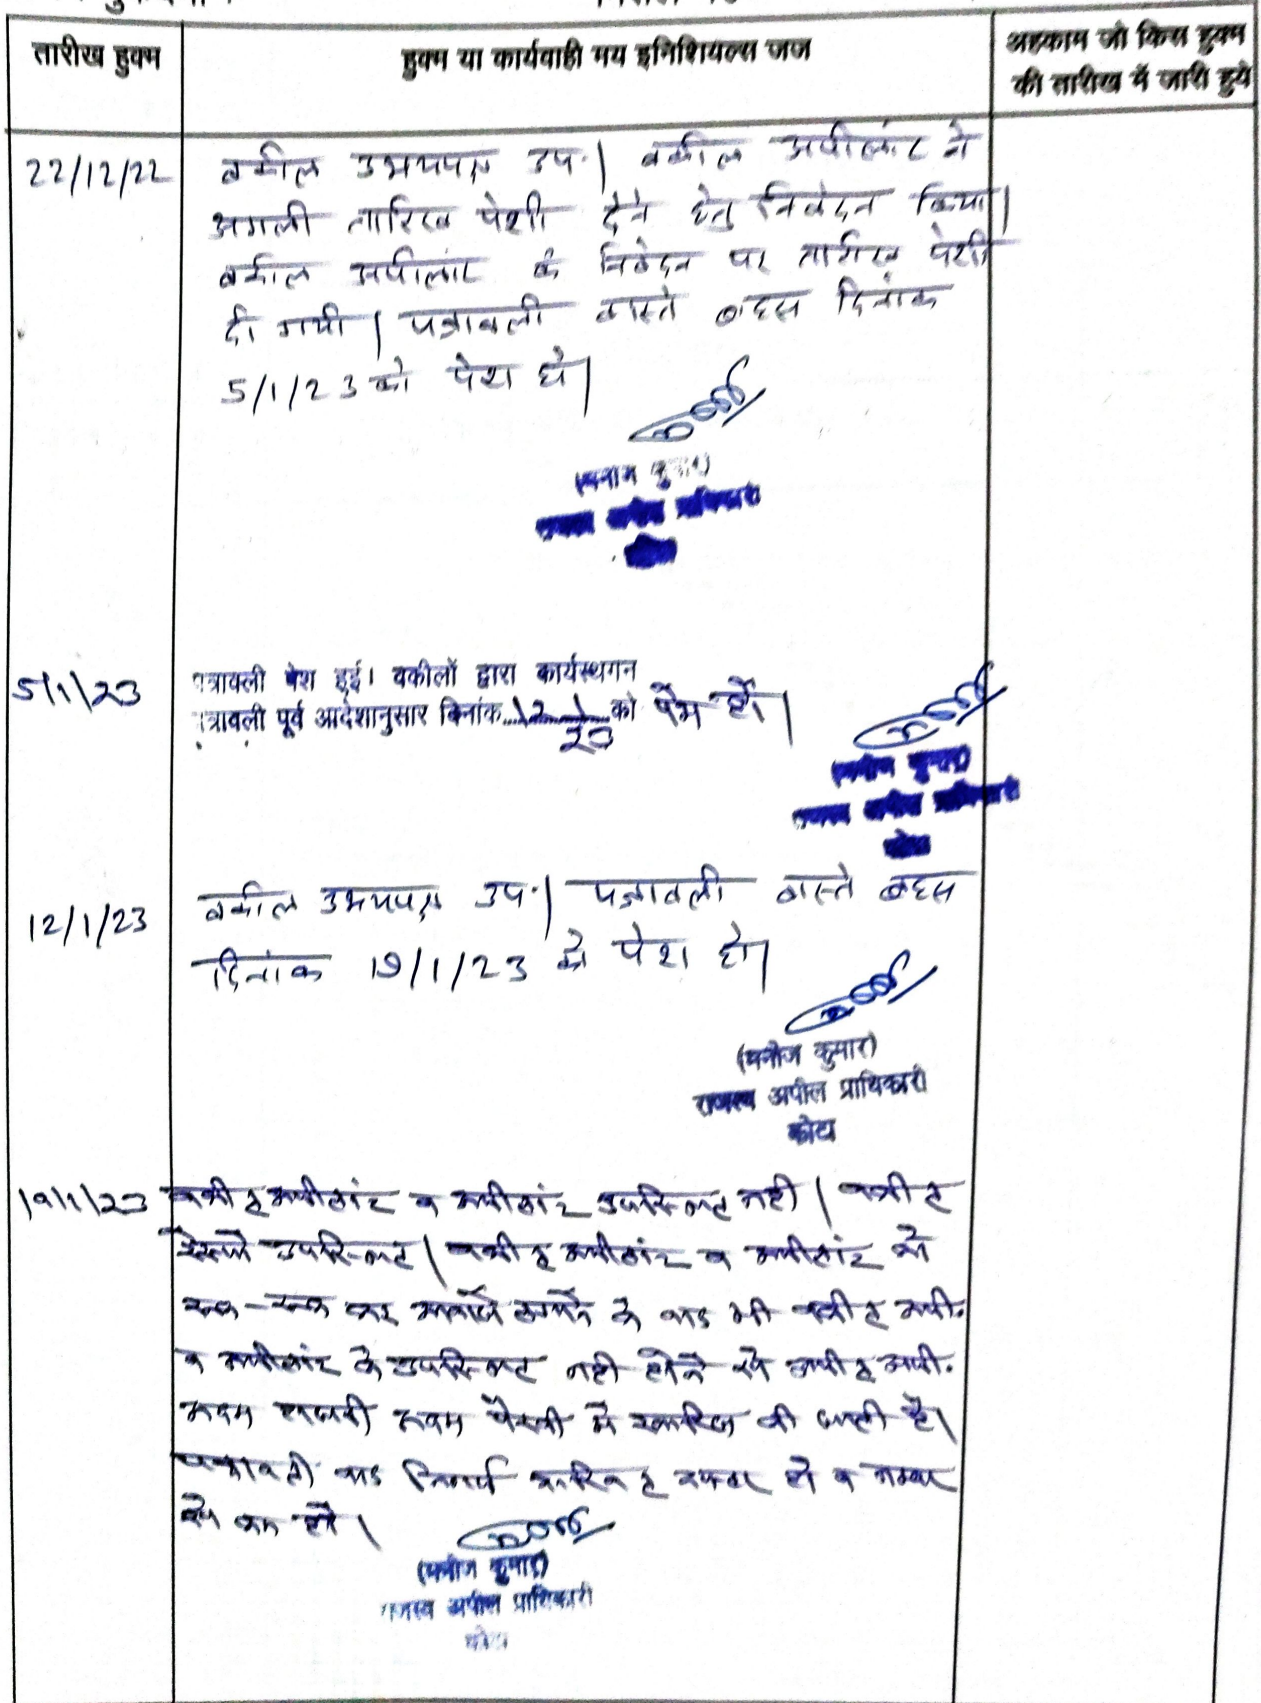 तारीख हुक्म
हुक्म या कार्यवाही मय इनिशियल्स जज
अहकाम जो किस हुक्म
की तारिख में जारी हुये
22/12/22
वकील उभयपक्ष उप.। वकील अपीलांट ने
अगली तारिख पेशी देने हेतु निवेदन किया।
वकील अपीलांट के निवेदन पर तारीख पेशी
दी गयी। पत्रावली वास्ते बहस दिनांक
5/1/23 को पेश हो।
(मनोज कुमार)
राजस्व अपील प्राधिकारी
5/1/23
पत्रावली पेश हुई। वकीलों द्वारा कार्यस्थगन
पत्रावली पूर्व आदेशानुसार दिनांक 12/1/23 को पेश हो।
(मनोज कुमार)
राजस्व अपील प्राधिकारी
कोटा
12/1/23
वकील उभयपक्ष उप.। पत्रावली वास्ते बहस
दिनांक 19/1/23 को पेश हो।
(मनोज कुमार)
राजस्व अपील प्राधिकारी
कोटा
19/1/23
वकील अपीलांट व अपीलांट उपस्थित नही। वकील
रेस्पो उपस्थित। वकील अपीलांट व अपीलांट को
रूक-रूक कर आवाजें लगाने के बाद भी वकील अपी.
व अपीलांट के उपस्थित नही होने से अपील अपी.
अदम हाजरी अदम पैरवी में खारिज की जाती है।
पत्रावली बाद निर्णय दाखिल दफ्तर हो व नम्बर
से कम हो।
(मनोज कुमार)
राजस्व अपील प्राधिकारी
कोटा